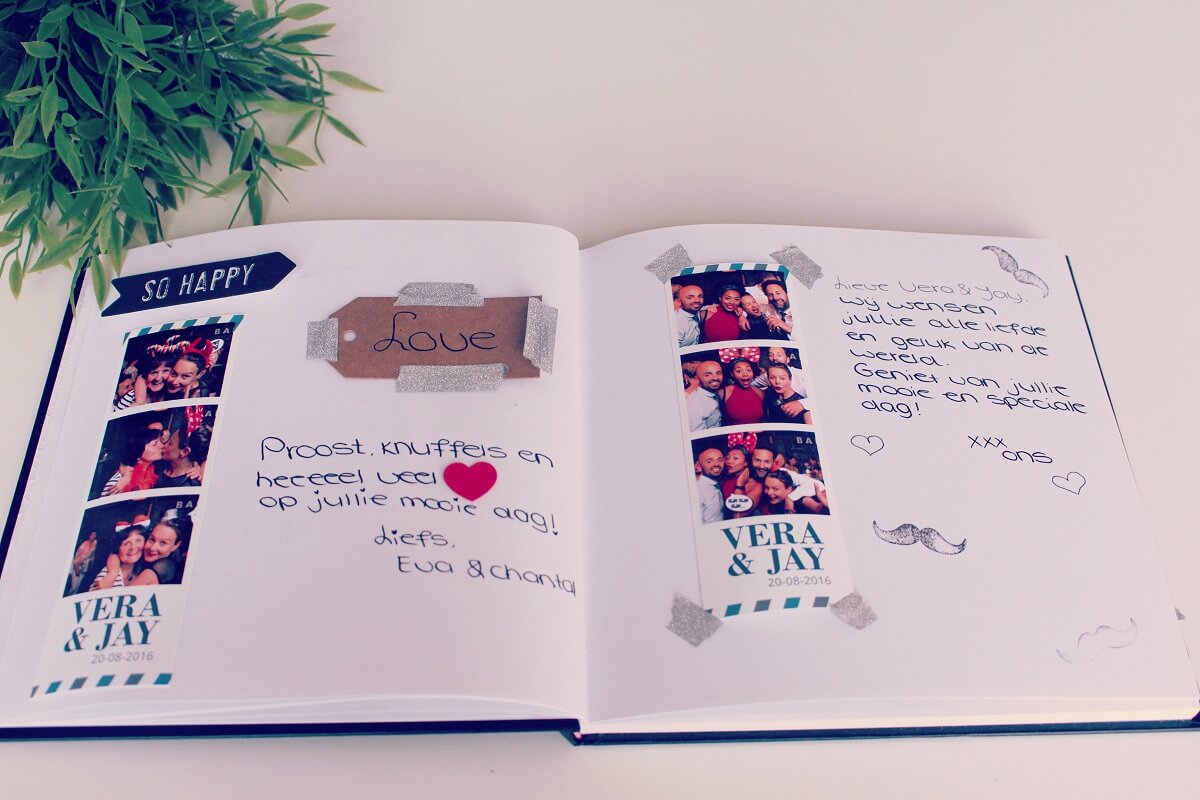 SO HAPPY
Love
Proost, knuffels en
heeeeel veel
op jullie mooie dag!
Liefs,
Eva & Chantal
VERA
& JAY
20-08-2016
VERA
& JAY
20-08-2016
Lieve Vera & Jay,
wij wensen
jullie alle liefde
en geluk van de
wereld.
Geniet van jullie
mooie en speciale
dag!
xxx
ons